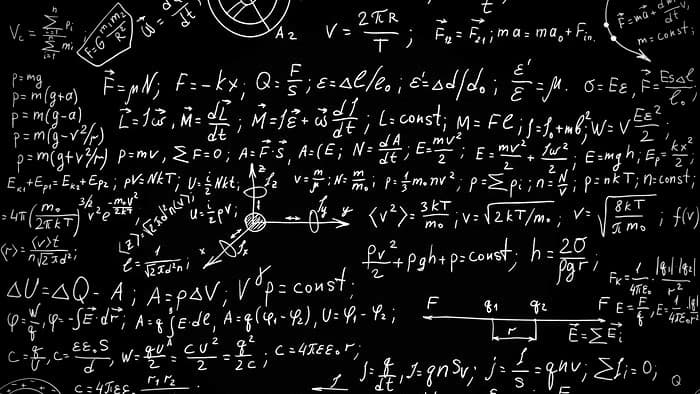 V_c = Σ_{i=1}^{n} p_i / Σ_{i=1}^{n} m_i
F=G m_1 m_2 / R²
A_2
V = 2πR / T ; F⃗_12 = F⃗_21 ; ma = ma_0 + F_in.
m = const;
p=mg
p=m(g+a)
p=m(g-a)
p=m(g-v²/r)
p=m(g+v²/r)
F⃗=μN; F=-kx; Q=F/S; ε=Δl/l_0; ε'=Δd/d_0; ε'/ε=μ. σ=Eε, F=ESΔl/l_0
L⃗=Jω⃗, M⃗=dL⃗/dt; M⃗=Jε⃗+ω⃗ dJ/dt; L=const; M=Fl; J=J_0+mb²; W=V Eε²/2;
p=mv, ΣF=0; A=F⃗·S, N=dA/dt; E=mv²/2; E=mv²/2+Jω²/2; E=mgh; E_p=kx²/2
E_K1+E_P1=E_K2+E_P2; pV=NkT; U=i/2 NkT; z J_z ν=m/μ; N=m/m_0; p=1/3 m_0nv²; p=Σp_i; n=N/V; p=nkT; n=const;
=4π(m_0/2πkT)^{3/2} v² e^{-m_0v²/2kT} U=i/2 pV; J_y y ⟨v²⟩=3kT/m_0; v=√(2kT/m_0); v=√(8kT/πm_0); f(v)
⟨r⟩=⟨v⟩t/n√2πd²; l=1/√2πd²n; x J_x
ρv²/2+ρgh+p=const; h=2σ/ρgr;
ΔU=ΔQ-A; A=pΔV; V^γ p=const;
F_K=1/4πε_0 |q_1||q_2|/r²
φ=W/q; φ=-∫E⃗·dr⃗; A=q∫E·dl, A=q(φ_1-φ_2), U=φ_1-φ_2;
F q_1 q_2 F E=F/q
r E⃗=ΣE⃗_i
C=q/U, C=εε_0S/d, W=qU/2=CU²/2=q²/2C; C=4πεε_0r;
C=4πεε_0 r_1r_2
J=q/dt, J=qnSv; j=J/S=qnv; ΣJ_i=0;